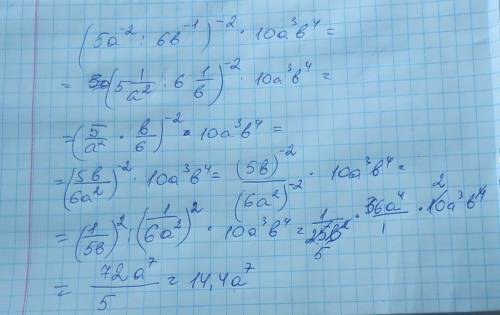 (5a⁻² : 6b⁻¹)⁻² · 10a³b⁴ =
= (5 1/a² : 6 1/b)⁻² · 10a³b⁴ =
= (5/a² · b/6)⁻² · 10a³b⁴ =
= (5b/6a²)⁻² · 10a³b⁴ = (5b)⁻²/(6a²)⁻² · 10a³b⁴ =
= (1/5b)² : (1/6a²)² · 10a³b⁴ = 1/25b² · 36a⁴/1 · 10a³b⁴
5 2
= 72a⁷/5 = 14,4a⁷